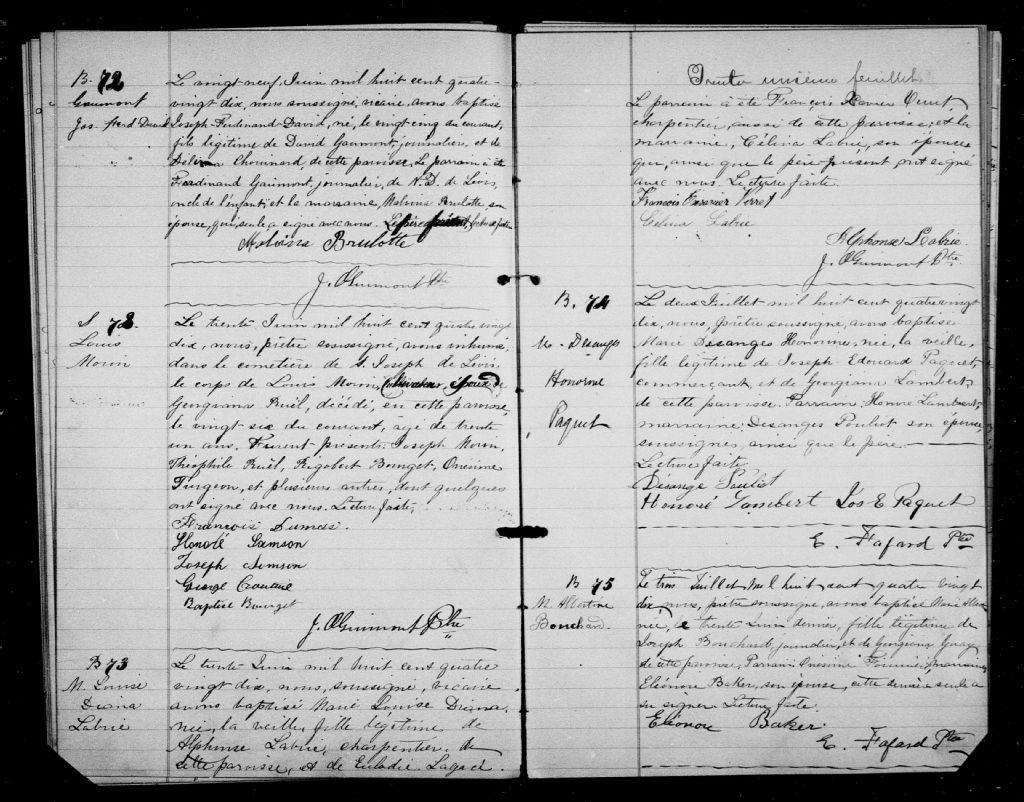 B. 72
Gaumont
Jos. Ferd. David
Le vingt-neuf, Juin mil huit cent quatre-
vingt dix, nous soussigné, vicaire, avons baptisé
Joseph-Ferdinand-David, né, le vingt-cinq du courant,
fils légitime de David Gaumont, journalier, et de
Chouinard, de cette paroisse. Le parrain a été
Ferdinand Gaumont, journalier, de N.D. de Lévis,
oncle de l'enfant, et la marraine, Malvina Brulotte son
épouse, qui, seule a signé avec nous. Lecture faite.
Malvina Brulotte
J. O Guimont Ptre
S. 73.
Louis
Morin
Le trente Juin mil huit cent quatre vingt
dix, nous, prêtre soussigné, avons inhumé,
dans le cimetière de S. Joseph de Lévis,
le corps de Louis Morin, Cultivateur, époux de
Georgiana Ruël, décédé, en cette paroisse,
le vingt-six du courant, agé de trente
un ans. Furent présents Joseph Morin,
Théophile Ruël, Rigobert Bourget, Onésime
Turgeon, et plusieurs autres, dont quelques
ont signé avec nous. Lecture faite.
François Dumas.
Honoré Samson
Joseph Samson
George Couture
Baptise Bourget
J. O Guimont Ptre
B 73
M. Louise
Diana
Labrie
Le trente Juin mil huit cent quatre
vingt dix, nous, soussigné, vicaire,
avons baptisé Marie Louise Diana,
née, la veille, fille légitime de
Alphonse Labrie, charpentier, de
cette paroisse, et de Eulodie Lagacé.
Trente unième feuillet
Le parrain a été François Xavier Verret
charpentier, aussi de cette paroisse, et la
marraine, Célina Labrie, son épouse
qui, ainsi que le père présent ont signé
avec nous. Lecture faite.
François Xavier Verret
Célina Labrie
Alphonse Labrie
J. O Guimont Ptre
B. 74
M. Desanges
Honorine
Paquet
Le deux Juillet mil huit cent quatre vingt
dix, nous, prêtre soussigné, avons baptisé
Marie Desanges Honorine, née, la veille,
fille légitime de Joseph Edouard Paquet,
commerçant, et de Georgiana Lambert,
de cette paroisse. Parrain, Honoré Lambert,
marraine, Desanges Pouliot son épouse,
soussignés, ainsi que le père.
Lecture faite.
Désange Pouliot
Honoré Lambert Jos E Paquet
E. Fafard Ptre
B 75
M. Albertine
Bouchard.
Le trois Juillet mil huit cent quatre vingt
dix, nous, prêtre soussigné, avons baptisé Marie
née, le trente Juin dernier, fille légitime de
Joseph Bouchard journalier, et de Georgiana
de cette paroisse. Parrain Onésime Fournier, marraine,
Eléonore Baker, son épouse, cette dernière seule a
su signer. Lecture faite.
Eléonore Baker.
E. Fafard Ptre